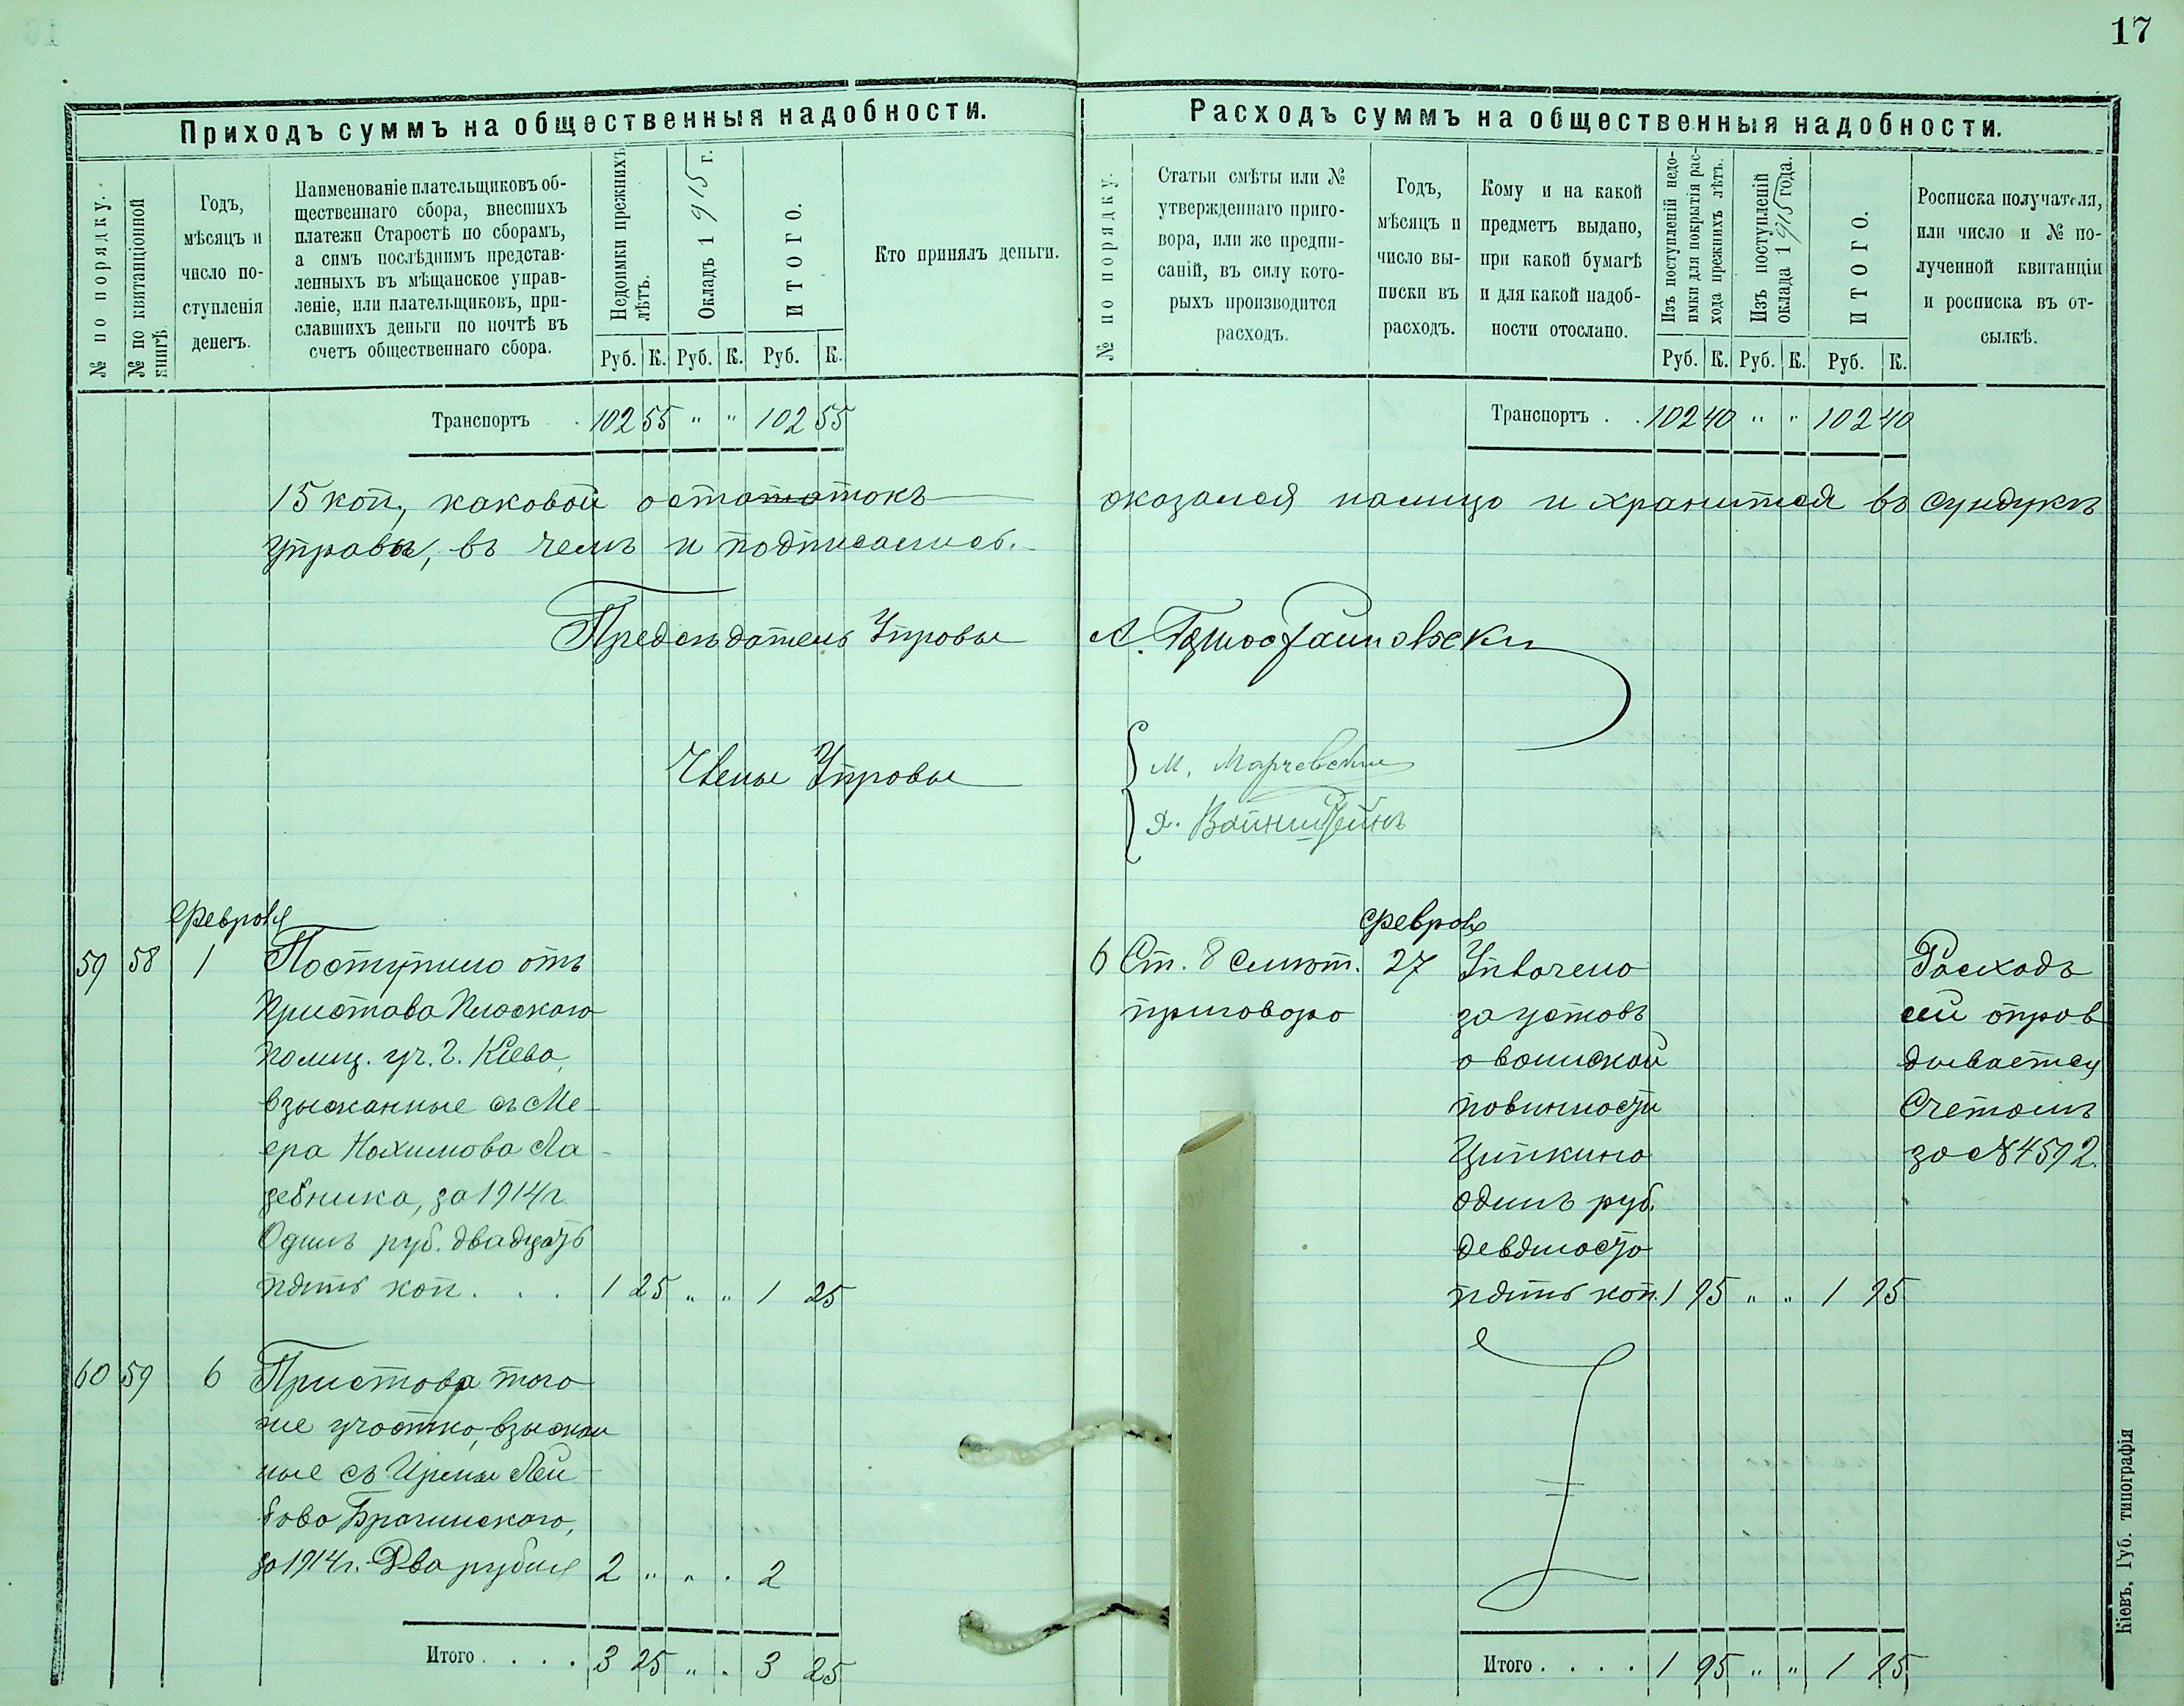 17
Приходъ суммъ на общественныя надобности.
№ по порядку.
№ по квитанціонной книгѣ.
Годъ,
мѣсяцъ и
число по-
ступленія
денегъ.
Наименованіе плательщиковъ об-
щественнаго сбора, внесшихъ
платежи Старостѣ по сборамъ,
а симъ послѣднимъ представ-
ленныхъ въ мѣщанское управ-
леніе, или плательщиковъ, при-
славшихъ деньги по почтѣ въ
счетъ общественнаго сбора.
Недоимки прежнихъ лѣтъ.
Окладъ 1915 г.
ИТОГО.
Руб. К. Руб. К. Руб. К.
Кто принялъ деньги.
Транспортъ . . 102 55 " " 102 55
15 коп., каковой остатокъ
управы, въ чемъ и подписались.
Предсѣдатель Управы
Члены Управы
Февраля
59 58 1 Поступило отъ
Пристава Плоскаго
полиц. уч. г. Кіева,
взысканные съ Ме-
ера Нахимова Ла-
зебника, за 1914 г.
Одинъ руб. двадцать
пять коп. . . . 1 25 " " 1 25
60 59 6 Пристава того
же участка, взыскан
ные съ Ирмы Лей-
бова Брагинскаго,
за 1914 г. Два рубля 2 " " . 2
Итого . . . . 3 25 " . 3 25
Расходъ суммъ на общественныя надобности.
№ по порядку.
Статьи смѣты или №
утвержденнаго приго-
вора, или же предпи-
саній, въ силу кото-
рыхъ производится
расходъ.
Годъ,
мѣсяцъ и
число вы-
писки въ
расходъ.
Кому и на какой
предметъ выдано,
при какой бумагѣ
и для какой надоб-
ности отослано.
Изъ поступленій недо-
имки для покрытія рас-
хода прежнихъ лѣтъ.
Изъ поступленій
оклада 1915 года.
ИТОГО.
Руб. К. Руб. К. Руб. К.
Росписка получателя,
или число и № по-
лученной квитанціи
и росписка въ от-
сылкѣ.
Транспортъ . . 102 40 " " 102 40
оказался налицо и хранится въ сундукѣ
А.
М. Марчевский
Вайнштейнъ
Февраля
6 Ст. 8 смѣт. 27 Уплачено
приговора за уставъ
о воинской
повинности
Ципкина
одинъ руб.
девяносто
пять коп. 1 95 " " 1 95
Расходъ
сей оправ
дывается
Счетомъ
за № 4592.
Итого . . . . 1 95 " " 1 95
Кіевъ, Губ. типографія